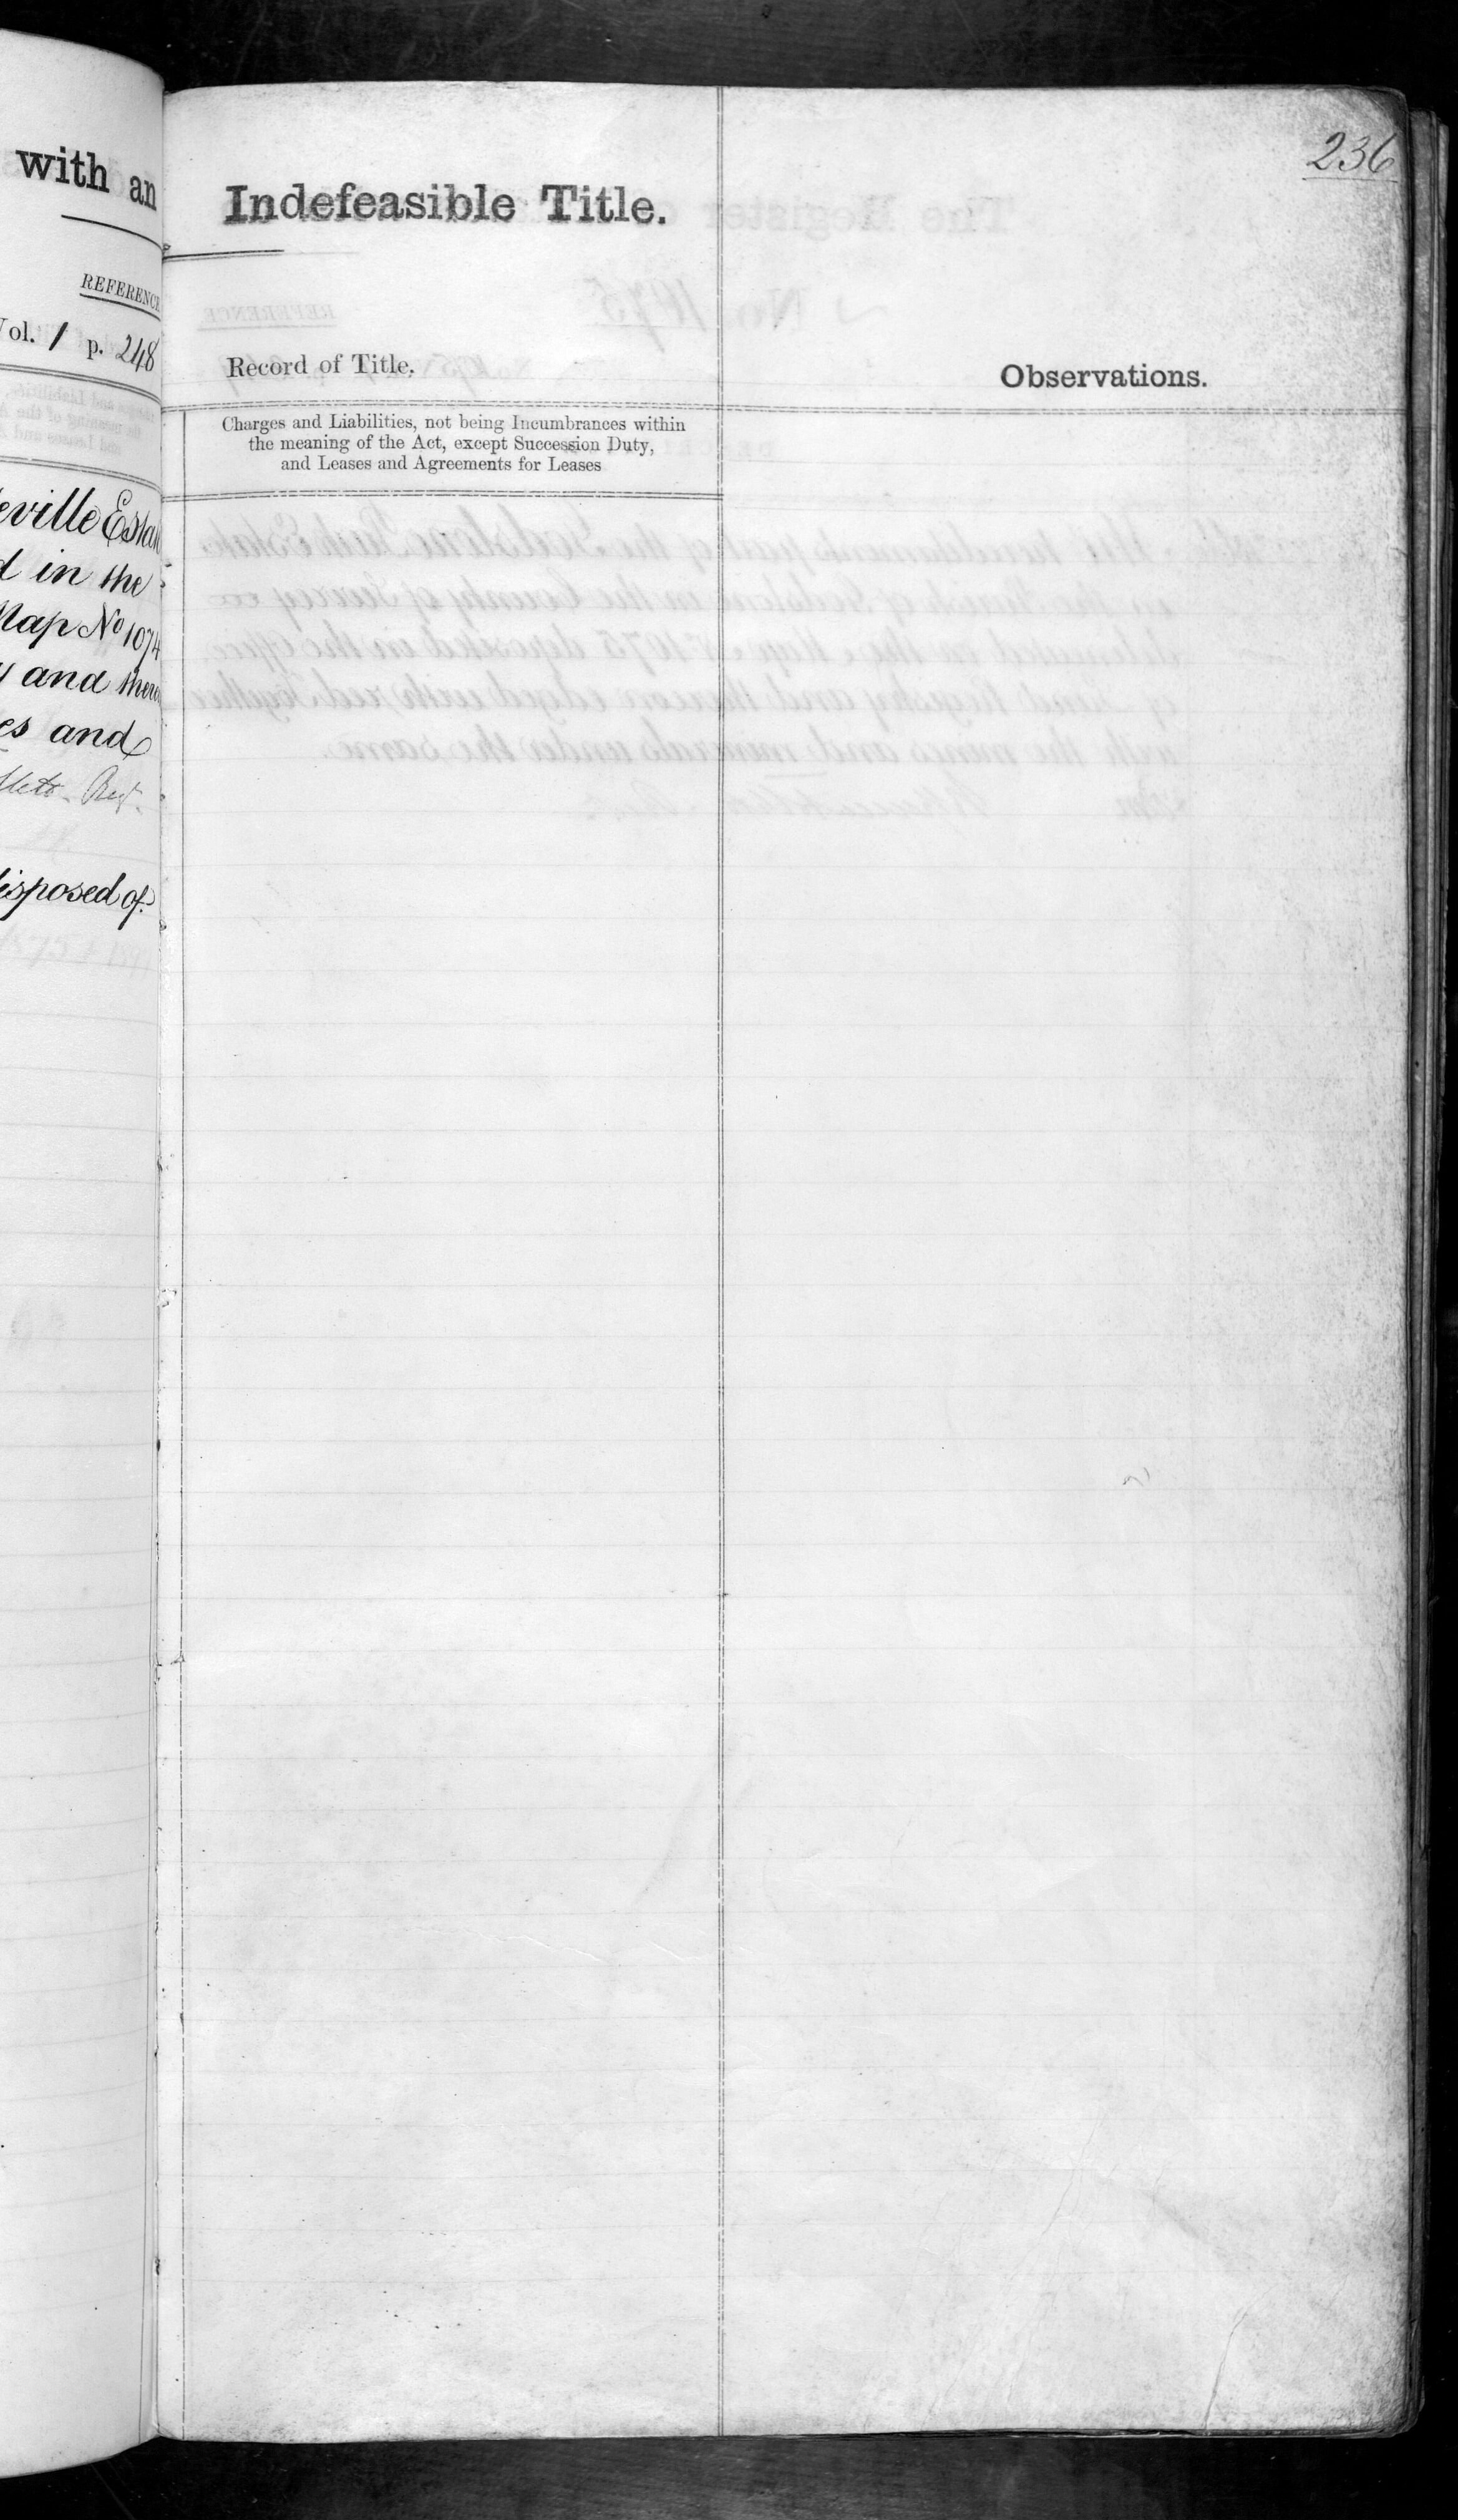 with an
REFERENCE
Vol. 1 p. 248
eville Estate
d in the
Map No 1074
y and there
es and
Reg.
disposed of.
236
Indefeasible Title.
Record of Title.
Observations.
Charges and Liabilities, not being Incumbrances within
the meaning of the Act, except Succession Duty,
and Leases and Agreements for Leases